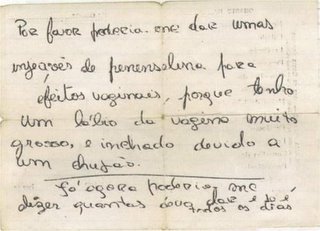 Por favor poderia-me dar umas
injecções de penenselina para
éfeitos vaginais, porque tenho
um lábio da vagina muito
grosso, e inchado devido a
um chupão.
Já agora poderia, me
dizer quantas devo dar e se é
todos os dias